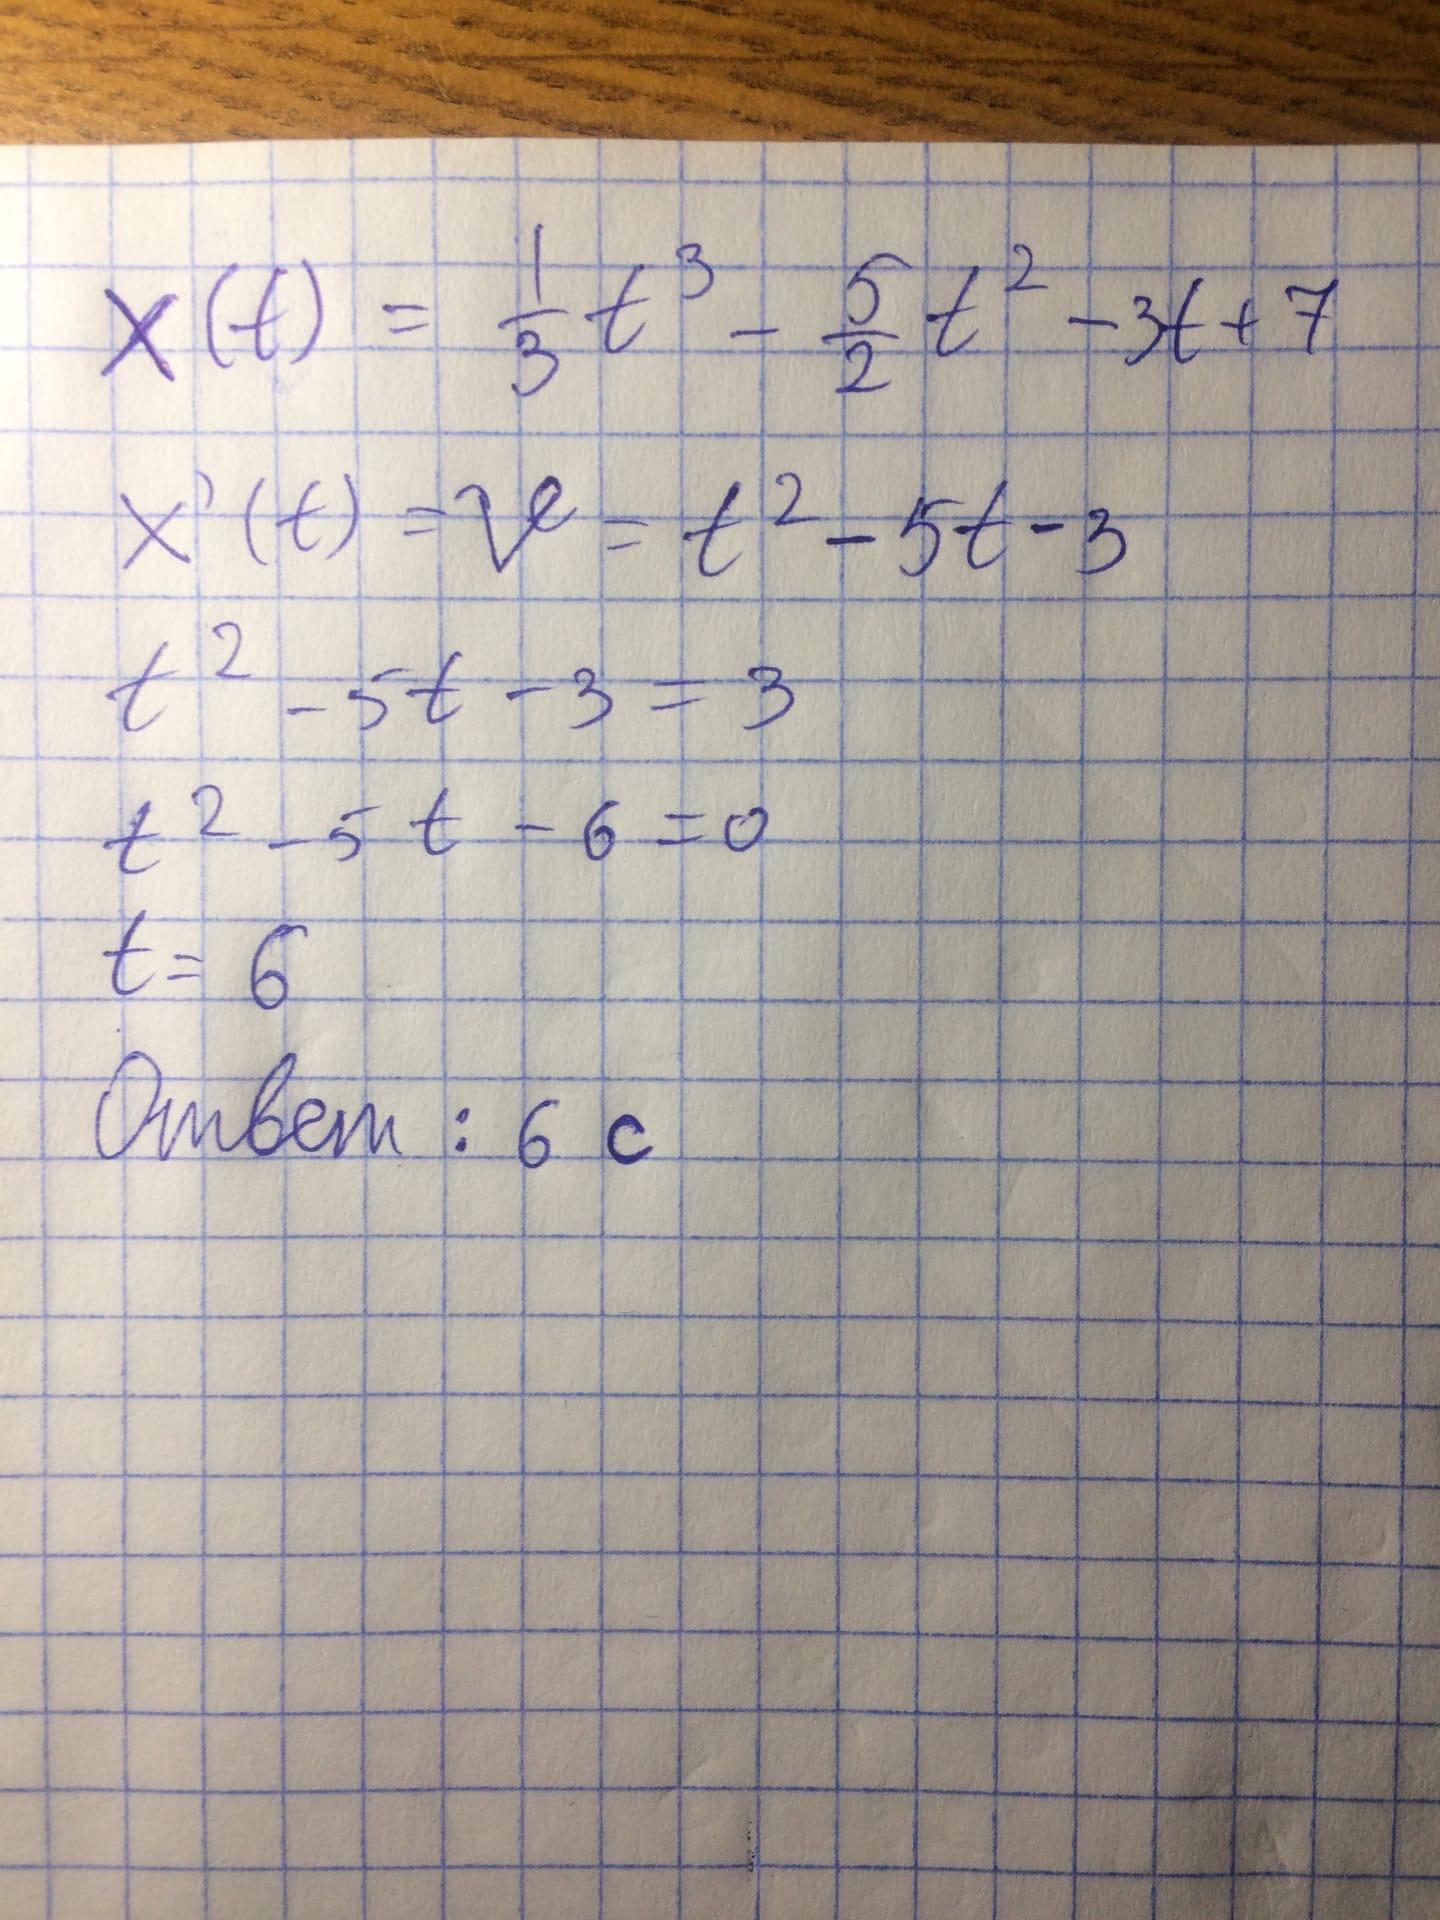 x(t) = 1/3 t³ - 5/2 t² - 3t + 7
x'(t) = V = t² - 5t - 3
t² - 5t - 3 = 3
t² - 5t - 6 = 0
t = 6
Ответ : 6 с